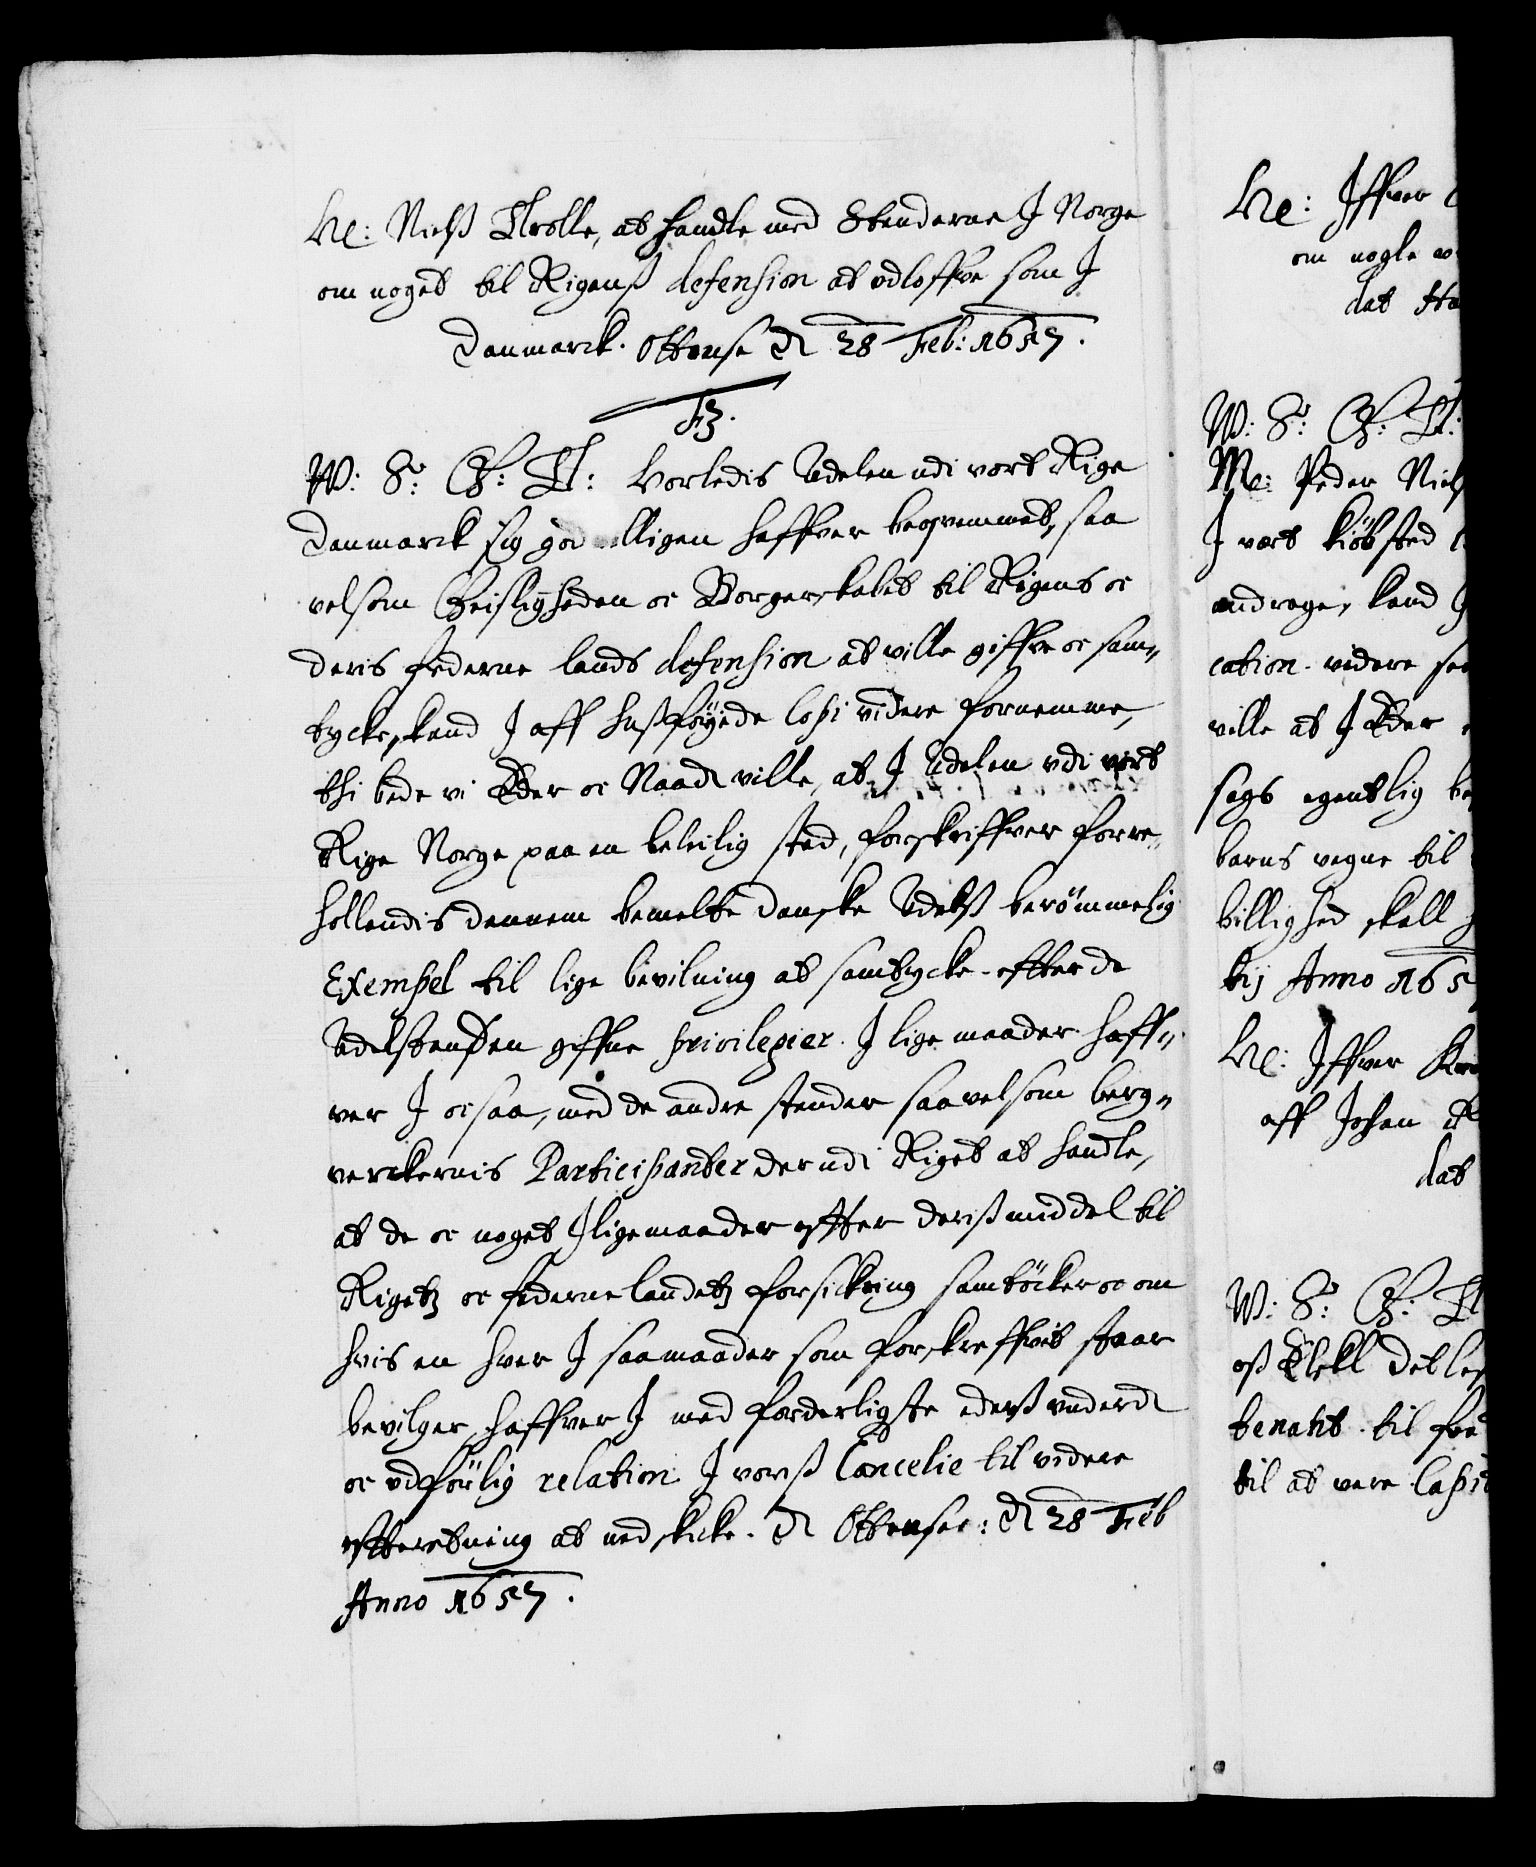 He: Nielß Trolle, at handle med Stenderne J Norge
om noget til Rigenß defension at udloffve som J
Danmarck. Ottense den 28 Feb: 1657.
F3.
W: S: G: T: Hvorledis Adelen udi vort Rige
Danmarck sig godvilligen haffver beqvemmet, saa
velsom Geisligheden oc Borgerskabet til Rigens oc
deris federne lands defension at ville giffve oc sam-
tycke, kand J aff hosföyede Copi videre fornemme,
thi bede vi Eder oc Naadl ville, at J Adelen udi vort
Rige Norge paa en beleilig sted, forskriffver forre-
hollendis dennem bemelte danske Adelß berömmelig
Exempel til lige bevilning at samtycke efter de
Adelstanden giffne privilegier. J lige maader haff-
ver J oc saa, med de andre stender saavelsom berg-
verckernis Participanter der udi Riget at handle,
at de oc noget J ligemaader effter derß middel til
Rigetz oc federnelandetz forsickring samtöcker oc om
hvis en hver J saamaader som forskreffvit staar
bevilger, haffver J med forderligste ederß underd
oc udförlig relation J vorß Cancelie til videre
effterretning at nedskicke. Ottensee: den 28 Feb
Anno 1657.
He: Jffver
om nogle
dat
W: S: G: T:
Mr: Peder Niels
J vort kiöbsted
androger, kand
cation videre
ville at J Eder
sags egentlig
barns vegne til
billighed skell
tij Anno 165
He: Jffver
aff Johan
dat
W: S: G: T
oß Elskl Detlef
benaht til
til at vere Capi